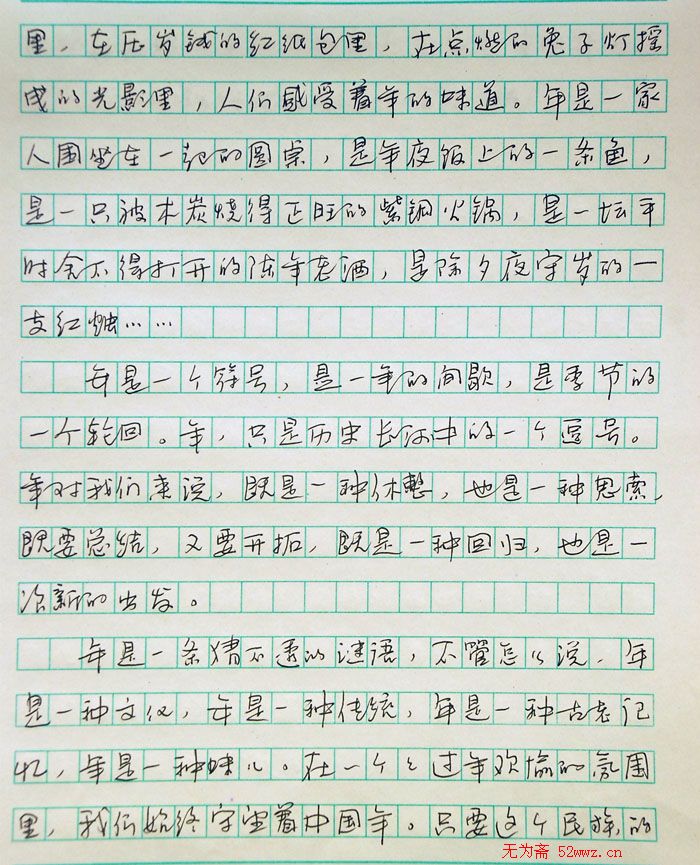 里，在压岁钱的红纸包里，在点燃的兔子灯摇
成的光影里，人们感受着年的味道。年是一家
人围坐在一起的圆桌，是年夜饭上的一条鱼，
是一只被木炭烧得正旺的紫铜火锅，是一坛平
时舍不得打开的陈年老酒，是除夕夜守岁的一
支红烛……
年是一个符号，是一年的间歇，是季节的
一个轮回。年，只是历史长河中的一个逗号。
年对我们来说，既是一种休整，也是一种思索，
既要总结，又要开拓，既是一种回归，也是一
次新的出发。
年是一条猜不透的谜语，不管怎么说，年
是一种文化，年是一种传统，年是一种古老记
忆，年是一种味儿。在一个个过年欢愉的氛围
里，我们始终守望着中国年。只要这个民族的
无为斋 52wwz.cn